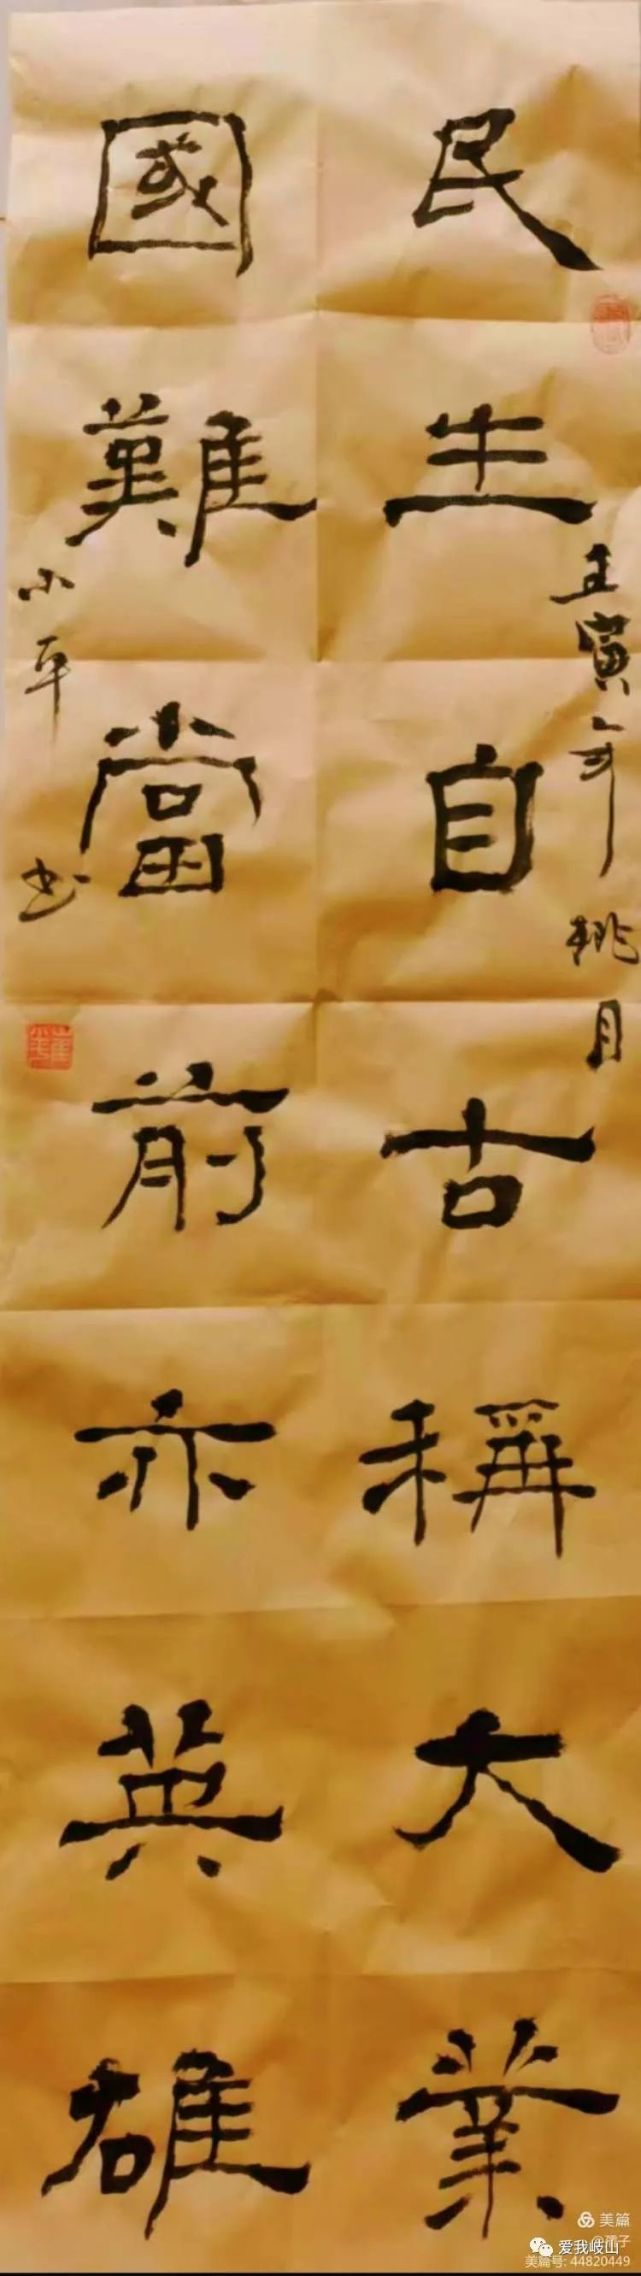 民生自古稱大業
國難當前亦英雄
壬寅年桃月
小平書
美篇
@孺子
爱我岐山
美篇号: 44820449